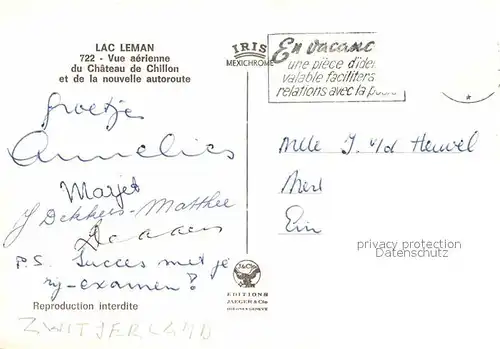 LAC LEMAN
722 - Vue aérienne
du Château de Chillon
et de la nouvelle autoroute
IRIS
MEXICHROME
En vacanc
une pièce d'iden
valable facilitera
relations avec la poste
groetjes
Annelies
Marjet
J Dekkers-Matthee
P.S. Succes met je
rij-examen!
Mlle J. v/d Heuvel
privacy protection
Datenschutz
J&Cie
EDITIONS
JAEGER & Cie
GENÈVE
Reproduction interdite
ZWITSERLAND